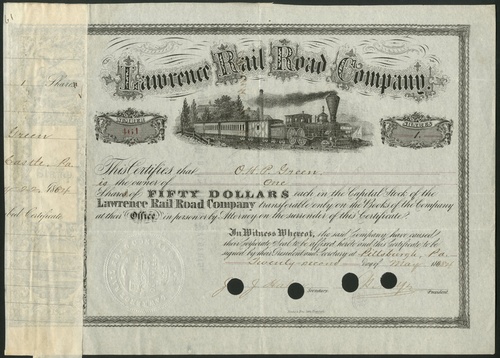 Shares
Green
Castle, Pa
Lawrence Rail Road Company.
161
1
This Certifies that O. H. P. Green
is the owner of One
Shares of FIFTY DOLLARS each in the Capital Stock of the
Lawrence Rail Road Company transferable only on the Books of the Company
at their Office in person or by Attorney on the surrender of this Certificate.
In Witness Whereof, the said Company have caused
their Corporate Seal to be affixed hereto and this Certificate to be
signed by their President and Secretary at Pittsburgh, Pa
Twenty-second day of May 1884
Secretary
President